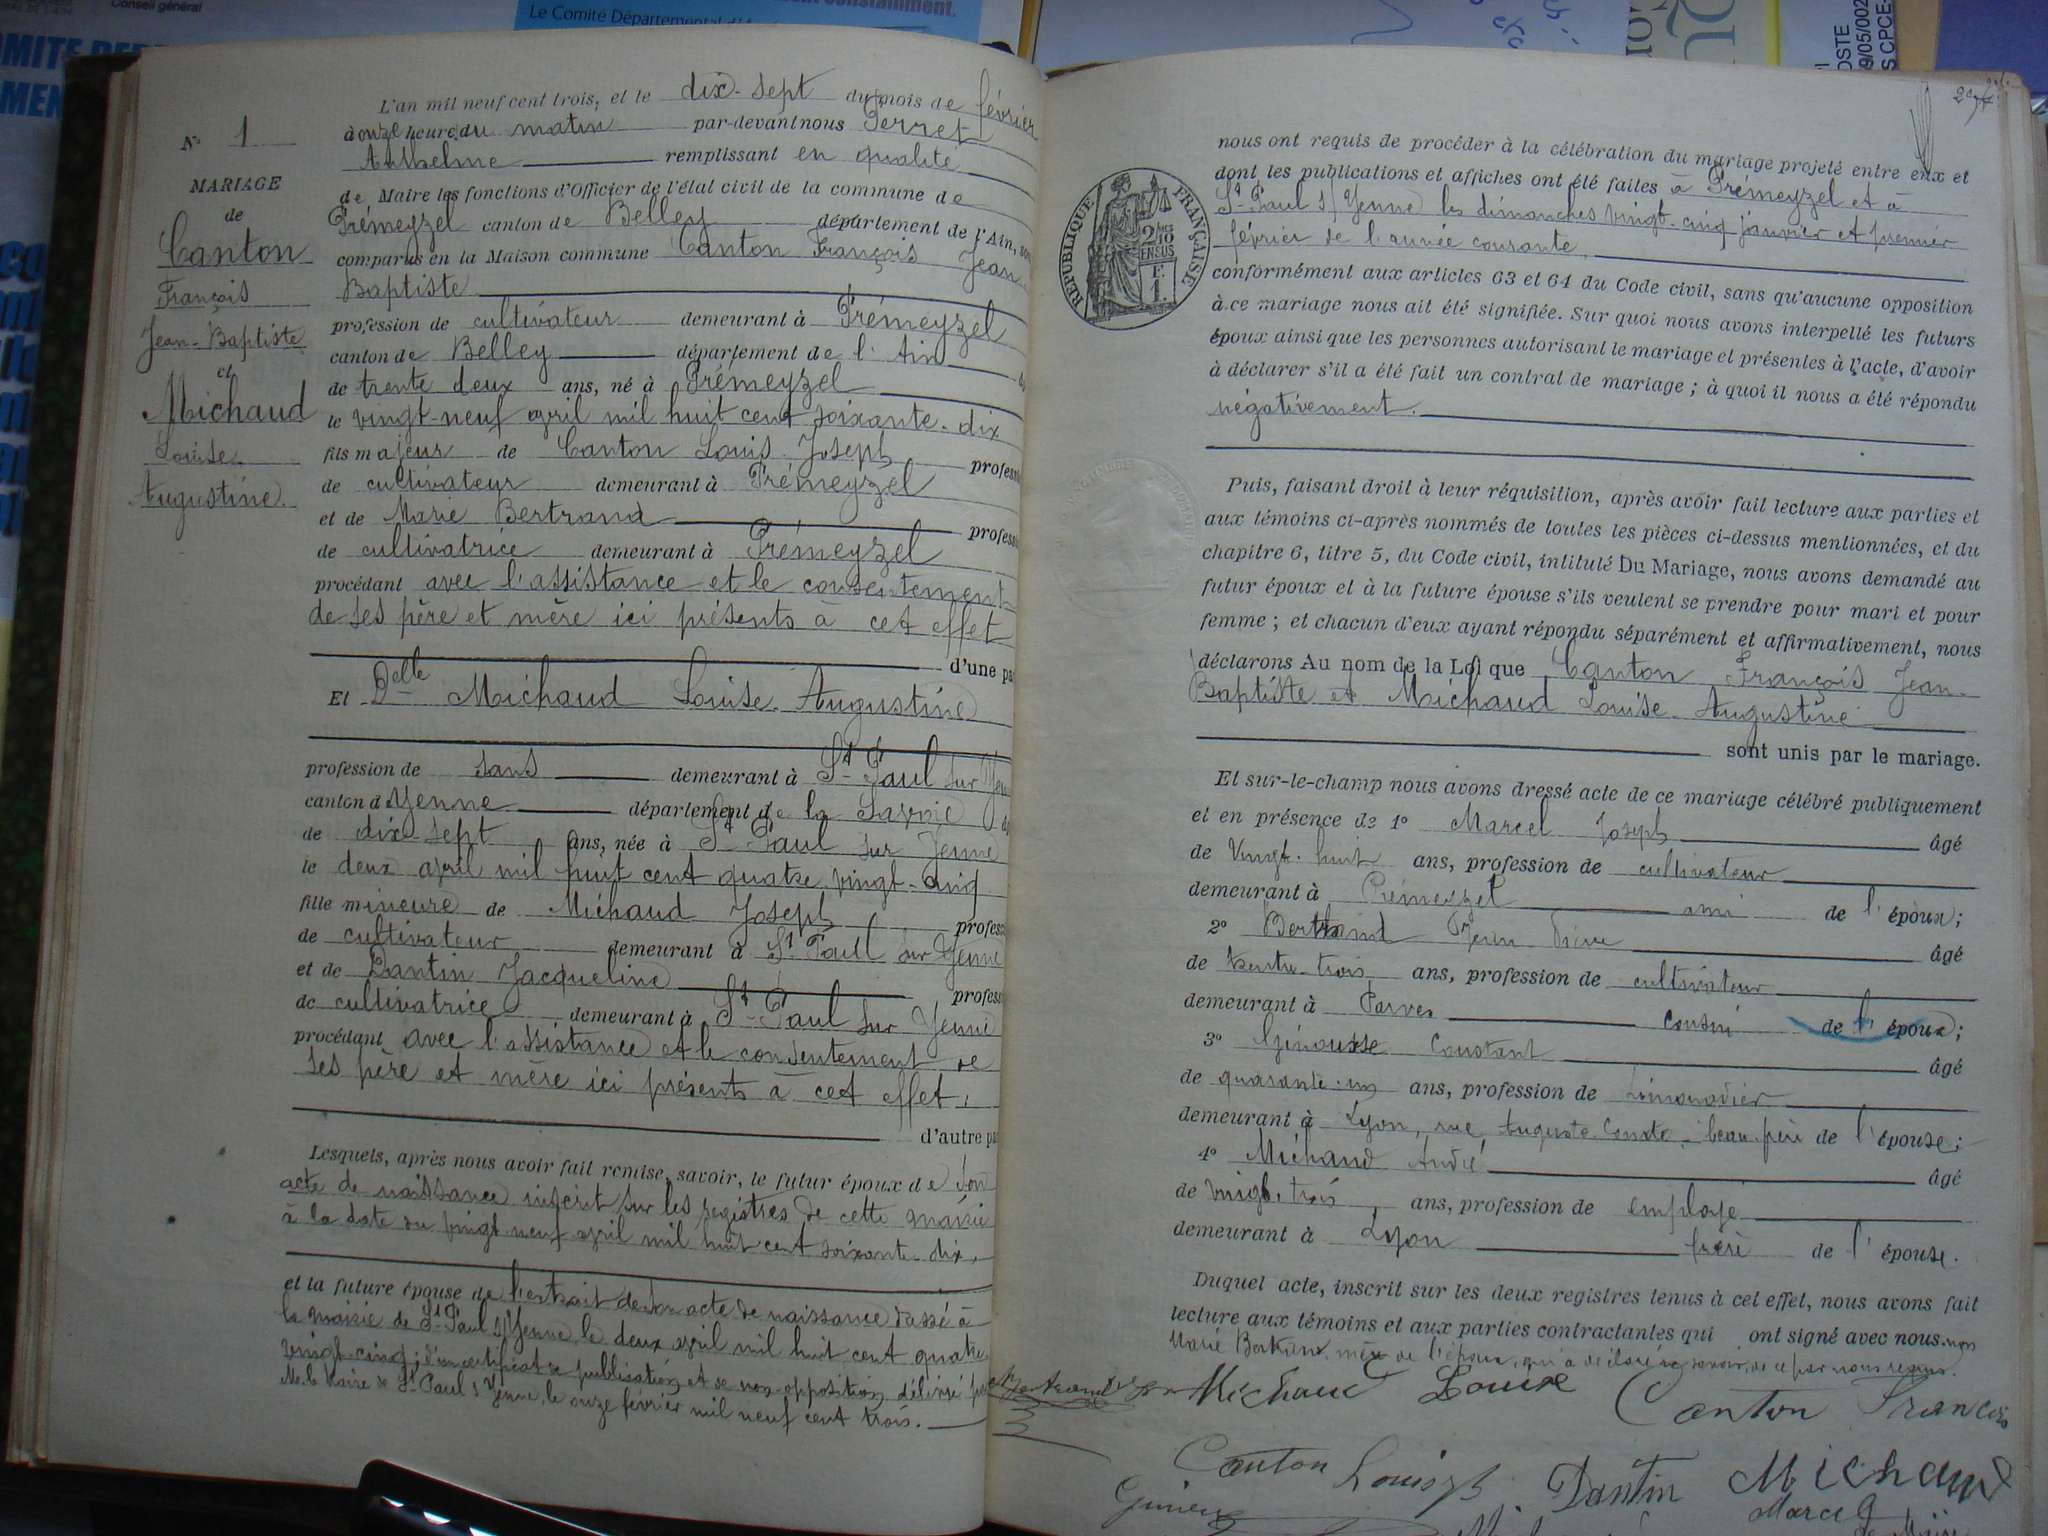 Conseil général
constamment.
Le Comité Départemental d'A
N° 1
MARIAGE
de
Canton
François
Jean-Baptiste
et
Michaud
Louise
Augustine.
L'an mil neuf cent trois, et le dix-sept du mois de février
à onze heure du matin par-devant nous Perret
Anthelme remplissant en qualité
de Maire les fonctions d'Officier de l'état civil de la commune de
Prémeyzel canton de Belley département de l'Ain, so
comparus en la Maison commune Canton François Jean
Baptiste
profession de cultivateur demeurant à Prémeyzel
canton de Belley département de l'Ain
de trente deux ans, né à Prémeyzel
le vingt-neuf avril mil huit cent soixante-dix
fils majeur de Canton Louis Joseph professi
de cultivateur demeurant à Prémeyzel
et de Marie Bertrand professi
de cultivatrice demeurant à Prémeyzel
procédant avec l'assistance et le consentement
de ses père et mère ici présents à cet effet
d'une pa
Et Delle Michaud Louise Augustine
profession de sans demeurant à St Paul sur Yenne
canton d Yenne département de la Savoie
de dix-sept ans, née à St Paul sur Yenne
le deux avril mil huit cent quatre vingt-cinq
fille mineure de Michaud Joseph profess
de cultivateur demeurant à St Paul sur Yenne
et de Dantin Jacqueline profess
de cultivatrice demeurant à St Paul sur Yenne
procédant avec l'assistance et le consentement de
ses père et mère ici présents à cet effet,
d'autre pa
Lesquels, après nous avoir fait remise, savoir, le futur époux de son
acte de naissance inscrit sur les registres de cette mairie
à la date du vingt neuf avril mil huit cent soixante-dix,
et la future épouse de l'extrait de son acte de naissance dressé à
la mairie de St Paul s/ Yenne le deux avril mil huit cent quatre
vingt-cinq; d'un certificat de publication et de non-opposition délivré par
Mr le Maire de St Paul s/ Yenne, le onze février mil neuf cent trois.
nous ont requis de procéder à la célébration du mariage projeté entre eux et
dont les publications et affiches ont été faites à Prémeyzel et à
St Paul s/ Yenne les dimanches vingt-cinq janvier et premier
février de l'année courante
conformément aux articles 63 et 64 du Code civil, sans qu'aucune opposition
à ce mariage nous ait été signifiée. Sur quoi nous avons interpellé les futurs
époux ainsi que les personnes autorisant le mariage et présentes à l'acte, d'avoir
à déclarer s'il a été fait un contrat de mariage; à quoi il nous a été répondu
négativement.
RÉPUBLIQUE FRANÇAISE
2/10 EN SUS
F.
1.
Puis, faisant droit à leur réquisition, après avoir fait lecture aux parties et
aux témoins ci-après nommés de toutes les pièces ci-dessus mentionnées, et du
chapitre 6, titre 5, du Code civil, intitulé Du Mariage, nous avons demandé au
futur époux et à la future épouse s'ils veulent se prendre pour mari et pour
femme; et chacun d'eux ayant répondu séparément et affirmativement, nous
déclarons Au nom de la Loi que Canton François Jean-
Baptiste et Michaud Louise Augustine
sont unis par le mariage.
Et sur-le-champ nous avons dressé acte de ce mariage célébré publiquement
et en présence de 1° Marcel Joseph âgé
de Vingt-huit ans, profession de cultivateur
demeurant à Prémeyzel ami de l'époux;
2° Bertrand âgé
de trente-trois ans, profession de cultivateur
demeurant à Parves cousin de l'époux;
3° Constant âgé
de quarante-un ans, profession de limonadier
demeurant à Lyon, rue Auguste Comte, beau-père de l'épouse;
4° Michaud André âgé
de vingt-trois ans, profession de employé
demeurant à Lyon frère de l'épouse.
Duquel acte, inscrit sur les deux registres tenus à cet effet, nous avons fait
lecture aux témoins et aux parties contractantes qui ont signé avec nous non
Marie Bertrand mère de l'époux, qui a déclaré ne savoir, de ce par nous requis.
Michaud Louise Canton François
Canton Louis Dantin Michaud
Marcel